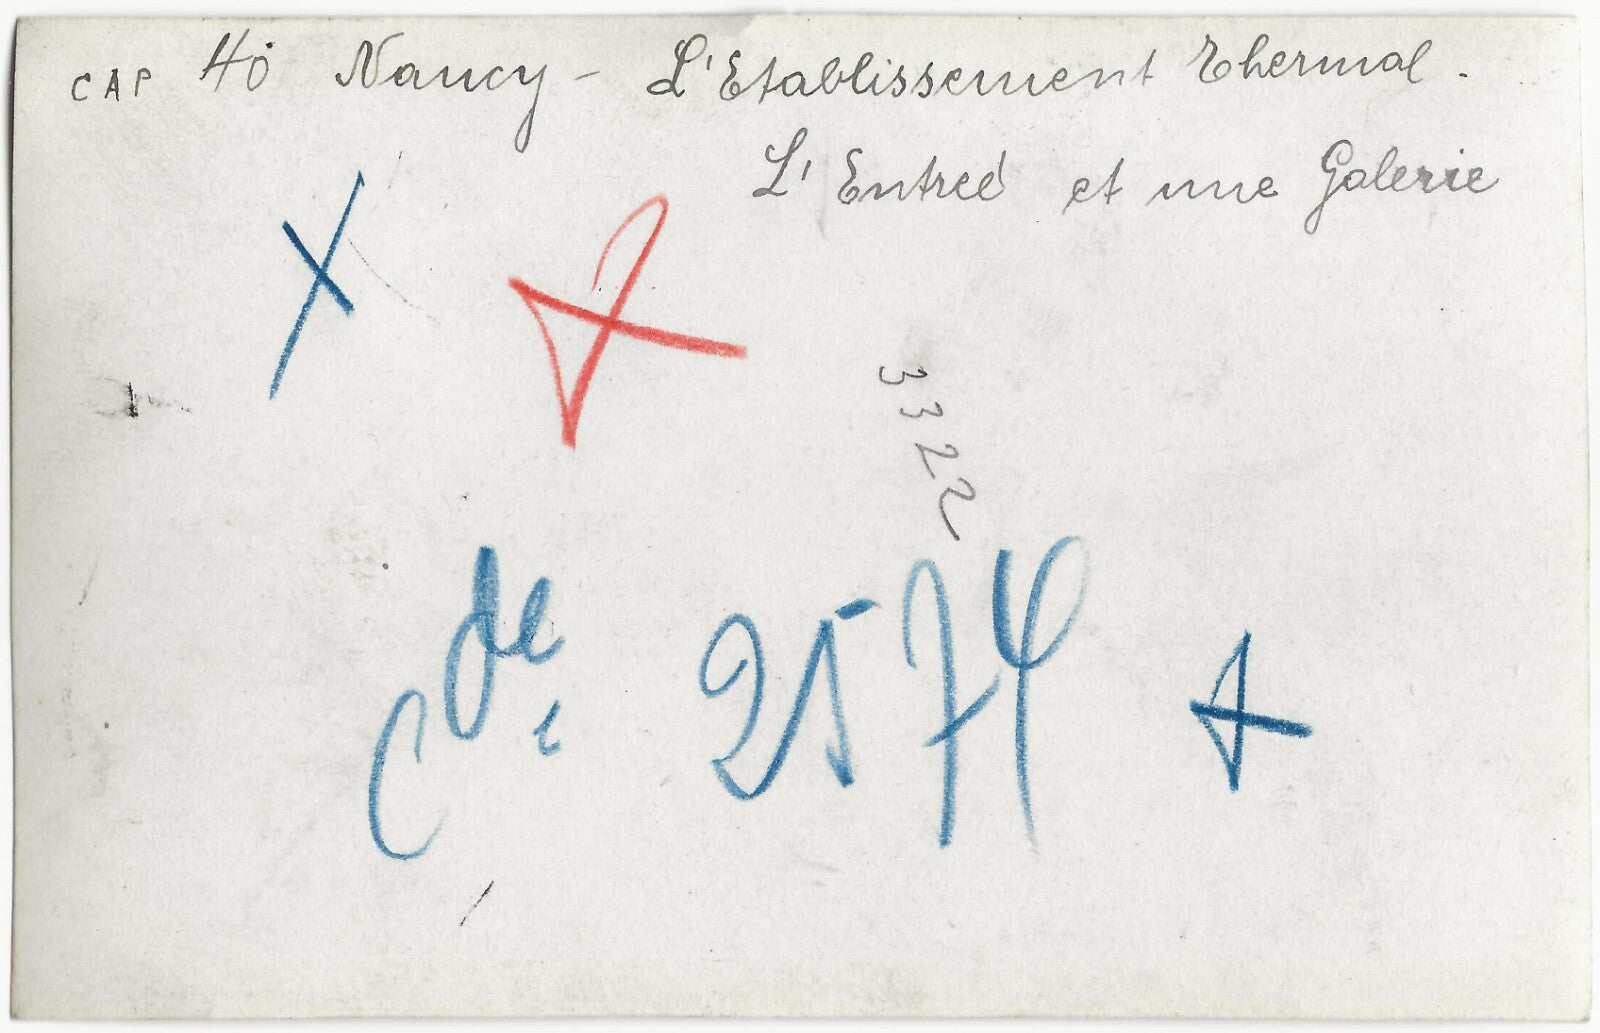 CAP 40 Nancy - L'Etablissement Thermal.
L'Entreé et une Galerie
3322
Cde 2574